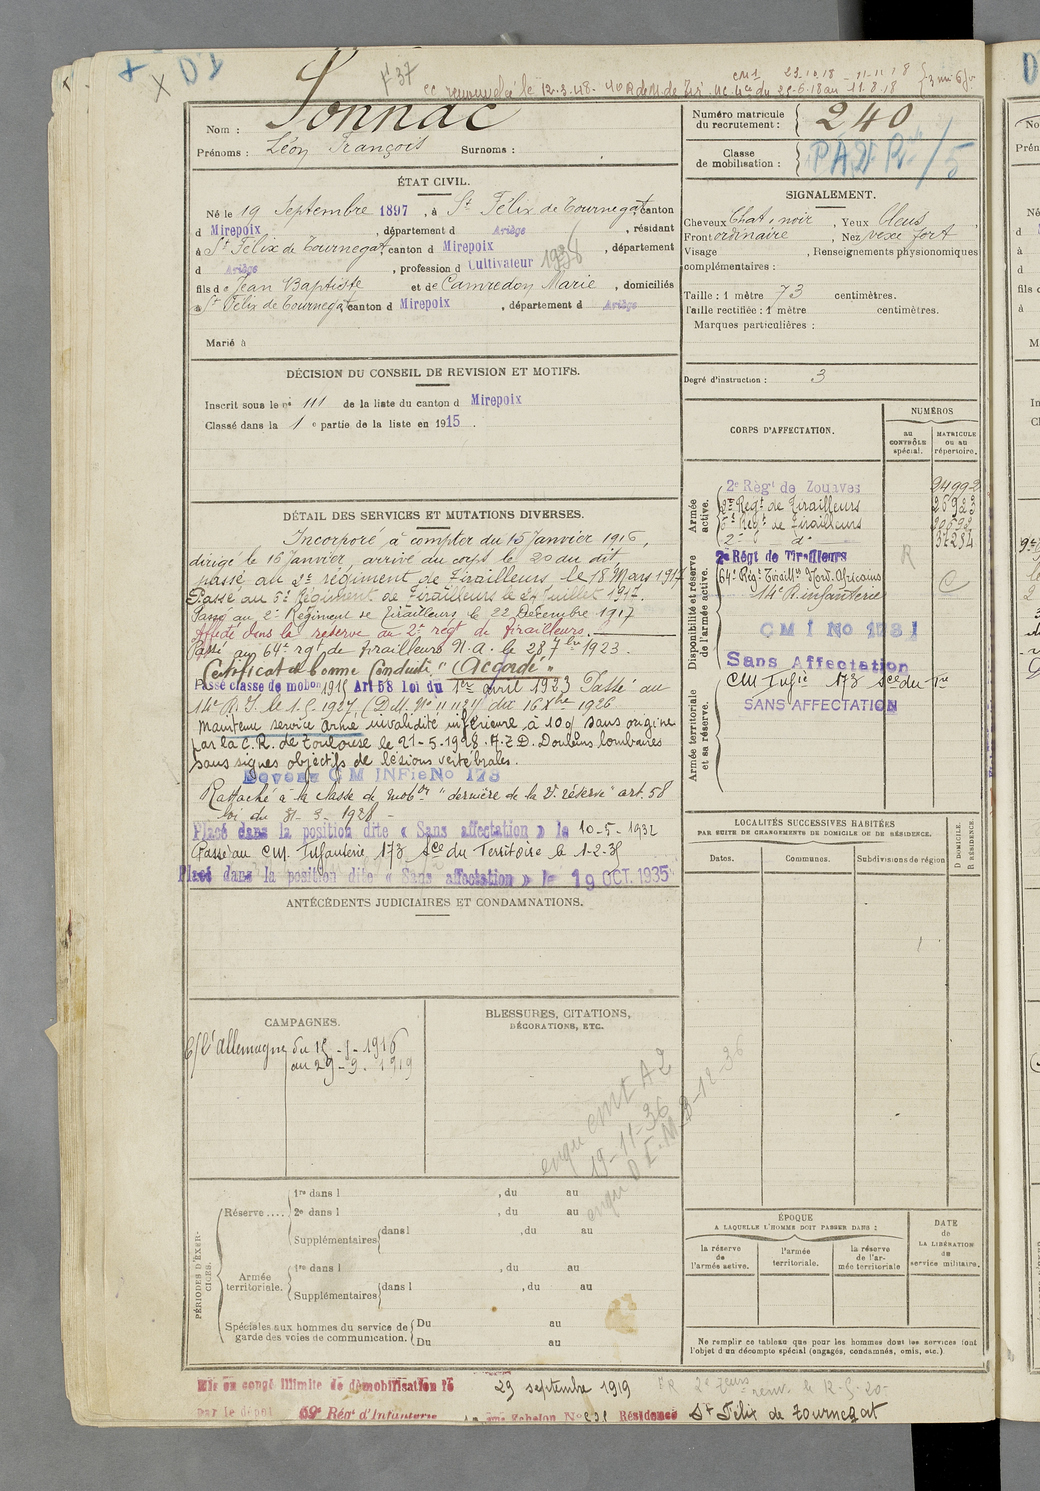 F 37
le 12-3-48
23-10-18 - 11-11-18
Nom : Sonnac
Prénoms : Léon François Surnoms :
Numéro matricule
du recrutement : 240
Classe
de mobilisation :
ÉTAT CIVIL.
Né le 19 Septembre 1897, à St Félix de Tournegat, canton
d Mirepoix, département d Ariège, résidant
à St Félix de Tournegat, canton d Mirepoix, département
d Ariège, profession d Cultivateur
fils de Jean Baptiste et de Camredon Marie, domiciliés
à St Félix de Tournegat canton d Mirepoix, département d Ariège
Marié à
SIGNALEMENT.
Cheveux Chat. noir, Yeux bleus,
Front ordinaire, Nez vexe fort
Visage , Renseignements physionomiques
complémentaires :
Taille : 1 mètre 73 centimètres.
Taille rectifiée : 1 mètre centimètres.
Marques particulières :
Degré d'instruction : 3
DÉCISION DU CONSEIL DE REVISION ET MOTIFS.
Inscrit sous le no 111 de la liste du canton d Mirepoix
Classé dans la 1e partie de la liste en 1915.
DÉTAIL DES SERVICES ET MUTATIONS DIVERSES.
Incorporé à compter du 15 Janvier 1916,
dirigé le 16 Janvier, arrivé au corps le 20 du dit
passé au 2e régiment de Tirailleurs, le 18 Mars 1917
Passé au 5e Régiment de Tirailleurs le 29 Juillet 1917.
Passé au 2e Régiment de Tirailleurs le 22 Décembre 1917
Affecté dans la réserve au 2e régt de tirailleurs.
Passé au 64e rgt de tirailleurs N.A. le 28 7bre 1923.
Certificat de bonne Conduite "Accordé"
Passé classe de mobon 1915 Art 58 loi du 1er avril 1923 Passé au
14e R.I. le 1.5.1927, (D.M. No 11112) du 16 Xbre 1926.
Maintenu service Armé invalidité inférieure à 10% sans origine
par la C.R. de Toulouse le 21-5-1928. A.Z.D. Douleurs lombaires
sans signes objectifs de lésions vertébrales.
Devenu C M INFie No 173
Rattaché à la classe de mobon "dernière de la 2e réserve" art. 58
loi du 31-3-1928 -
Placé dans la position dite « Sans affectation » le 10-5-1932
Passé au CM. Infanterie 173 Sce du Territoire le 1-2-35
Placé dans la position dite « Sans affectation » le 19 OCT. 1935
CORPS D'AFFECTATION.
NUMÉROS
au
CONTRÔLE
spécial.
MATRICULE
ou au
répertoire.
Armée
active.
2e Régt de Zouaves 24992
2e Regt de Tirailleurs 26923
5e Regt de Tirailleurs
2e do 37254
Disponibilité et réserve
de l'armée active.
2e Régt de Tirailleurs
64e Régt Tiraillrs Nord-Africains
14e R. infanterie
R
C
C M I No 1781
Sans Affectation
Armée territoriale
et sa réserve.
CM Infie 173 Sce du Tre
SANS AFFECTATION
LOCALITÉS SUCCESSIVES HABITÉES
PAR SUITE DE CHANGEMENTS DE DOMICILE OU DE RÉSIDENCE.
Dates.
Communes.
Subdivisions de région
D DOMICILE.
R RÉSIDENCE.
ANTÉCÉDENTS JUDICIAIRES ET CONDAMNATIONS.
CAMPAGNES.
C/ l'allemagne du 15-1-1916
au 29-9-1919
BLESSURES, CITATIONS,
DÉCORATIONS, ETC.
19-11-36
8-12-36
PÉRIODES D'EXER-
CICES.
Réserve....
1re dans l , du au
2e dans l , du au
Supplémentaires dans l , du au
Armée
territoriale.
1re dans l , du au
Supplémentaires dans l , du au
Spéciales aux hommes du service de
garde des voies de communication.
Du au
Du au
ÉPOQUE
A LAQUELLE L'HOMME DOIT PASSER DANS :
la réserve
de
l'armée active.
l'armée
territoriale.
la réserve
de l'ar-
mée territoriale
DATE
de
LA LIBÉRATION
du
service militaire.
Ne remplir ce tableau que pour les hommes dont les services font
l'objet d'un décompte spécial (engagés, condamnés, omis, etc.)
Mis en congé illimité de démobilisation le 29 septembre 1919
Par le dépôt 69e Régt d'Infanterie Echelon No Résidence St Félix de Tournegat